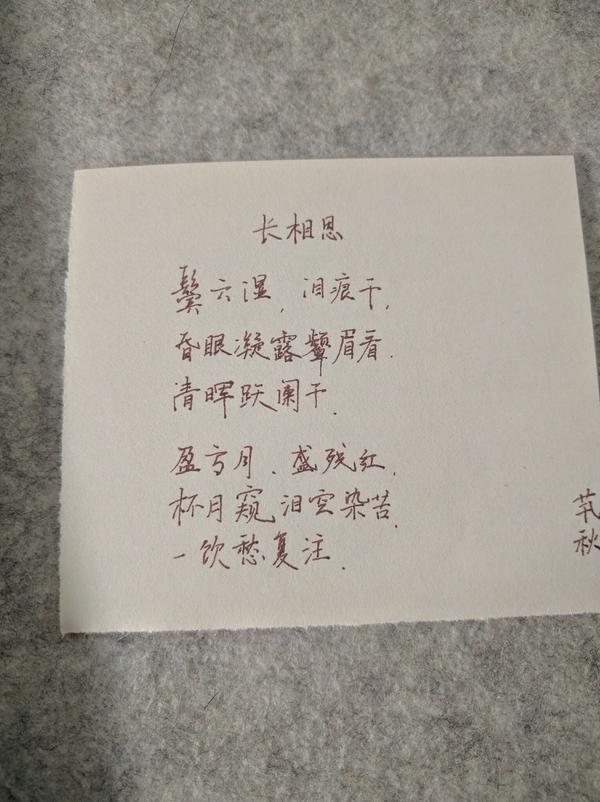 长相思
鬓云湿，泪痕干，
昏眼凝露颦眉看．
清晖跃阑干．
盈亏月．盛残红．
杯月窥泪空染苦．
一饮愁复注．
秋